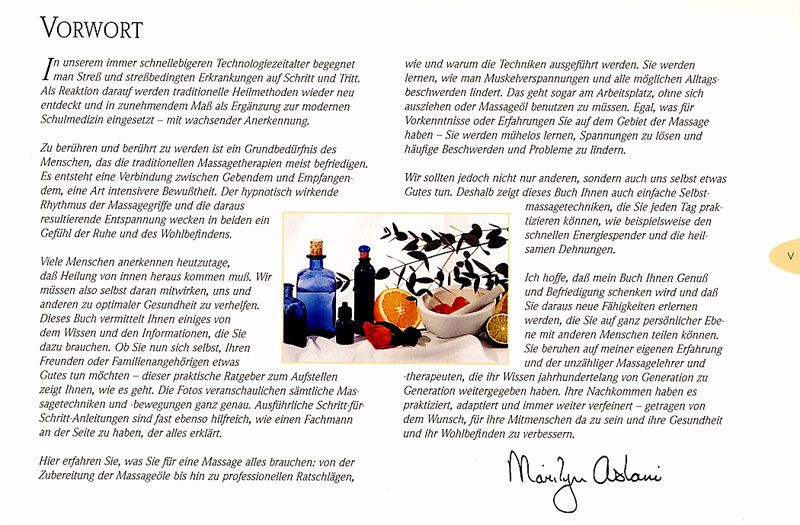 VORWORT
In unserem immer schnellebigeren Technologiezeitalter begegnet
man Streß und streßbedingten Erkrankungen auf Schritt und Tritt.
Als Reaktion darauf werden traditionelle Heilmethoden wieder neu
entdeckt und in zunehmendem Maß als Ergänzung zur modernen
Schulmedizin eingesetzt – mit wachsender Anerkennung.
Zu berühren und berührt zu werden ist ein Grundbedürfnis des
Menschen, das die traditionellen Massagetherapien meist befriedigen.
Es entsteht eine Verbindung zwischen Gebendem und Empfangen-
dem, eine Art intensivere Bewußtheit. Der hypnotisch wirkende
Rhythmus der Massagegriffe und die daraus
resultierende Entspannung wecken in beiden ein
Gefühl der Ruhe und des Wohlbefindens.
Viele Menschen anerkennen heutzutage,
daß Heilung von innen heraus kommen muß. Wir
müssen also selbst daran mitwirken, uns und
anderen zu optimaler Gesundheit zu verhelfen.
Dieses Buch vermittelt Ihnen einiges von
dem Wissen und den Informationen, die Sie
dazu brauchen. Ob Sie nun sich selbst, Ihren
Freunden oder Familienangehörigen etwas
Gutes tun möchten – dieser praktische Ratgeber zum Aufstellen
zeigt Ihnen, wie es geht. Die Fotos veranschaulichen sämtliche Mas-
sagetechniken und -bewegungen ganz genau. Ausführliche Schritt-für-
Schritt-Anleitungen sind fast ebenso hilfreich, wie einen Fachmann
an der Seite zu haben, der alles erklärt.
Hier erfahren Sie, was Sie für eine Massage alles brauchen: von der
Zubereitung der Massageöle bis hin zu professionellen Ratschlägen,
wie und warum die Techniken ausgeführt werden. Sie werden
lernen, wie man Muskelverspannungen und alle möglichen Alltags-
beschwerden lindert. Das geht sogar am Arbeitsplatz, ohne sich
ausziehen oder Massageöl benutzen zu müssen. Egal, was für
Vorkenntnisse oder Erfahrungen Sie auf dem Gebiet der Massage
haben – Sie werden mühelos lernen, Spannungen zu lösen und
häufige Beschwerden und Probleme zu lindern.
Wir sollten jedoch nicht nur anderen, sondern auch uns selbst etwas
Gutes tun. Deshalb zeigt dieses Buch Ihnen auch einfache Selbst-
massagetechniken, die Sie jeden Tag prak-
tizieren können, wie beispielsweise den
schnellen Energiespender und die heil-
samen Dehnungen.
Ich hoffe, daß mein Buch Ihnen Genuß
und Befriedigung schenken wird und daß
Sie daraus neue Fähigkeiten erlernen
werden, die Sie auf ganz persönlicher Ebe-
ne mit anderen Menschen teilen können.
Sie beruhen auf meiner eigenen Erfahrung
und der unzähliger Massagelehrer und
-therapeuten, die ihr Wissen jahrhundertelang von Generation zu
Generation weitergegeben haben. Ihre Nachkommen haben es
praktiziert, adaptiert und immer weiter verfeinert – getragen von
dem Wunsch, für ihre Mitmenschen da zu sein und ihre Gesundheit
und ihr Wohlbefinden zu verbessern.
Marilyn Aslani
V